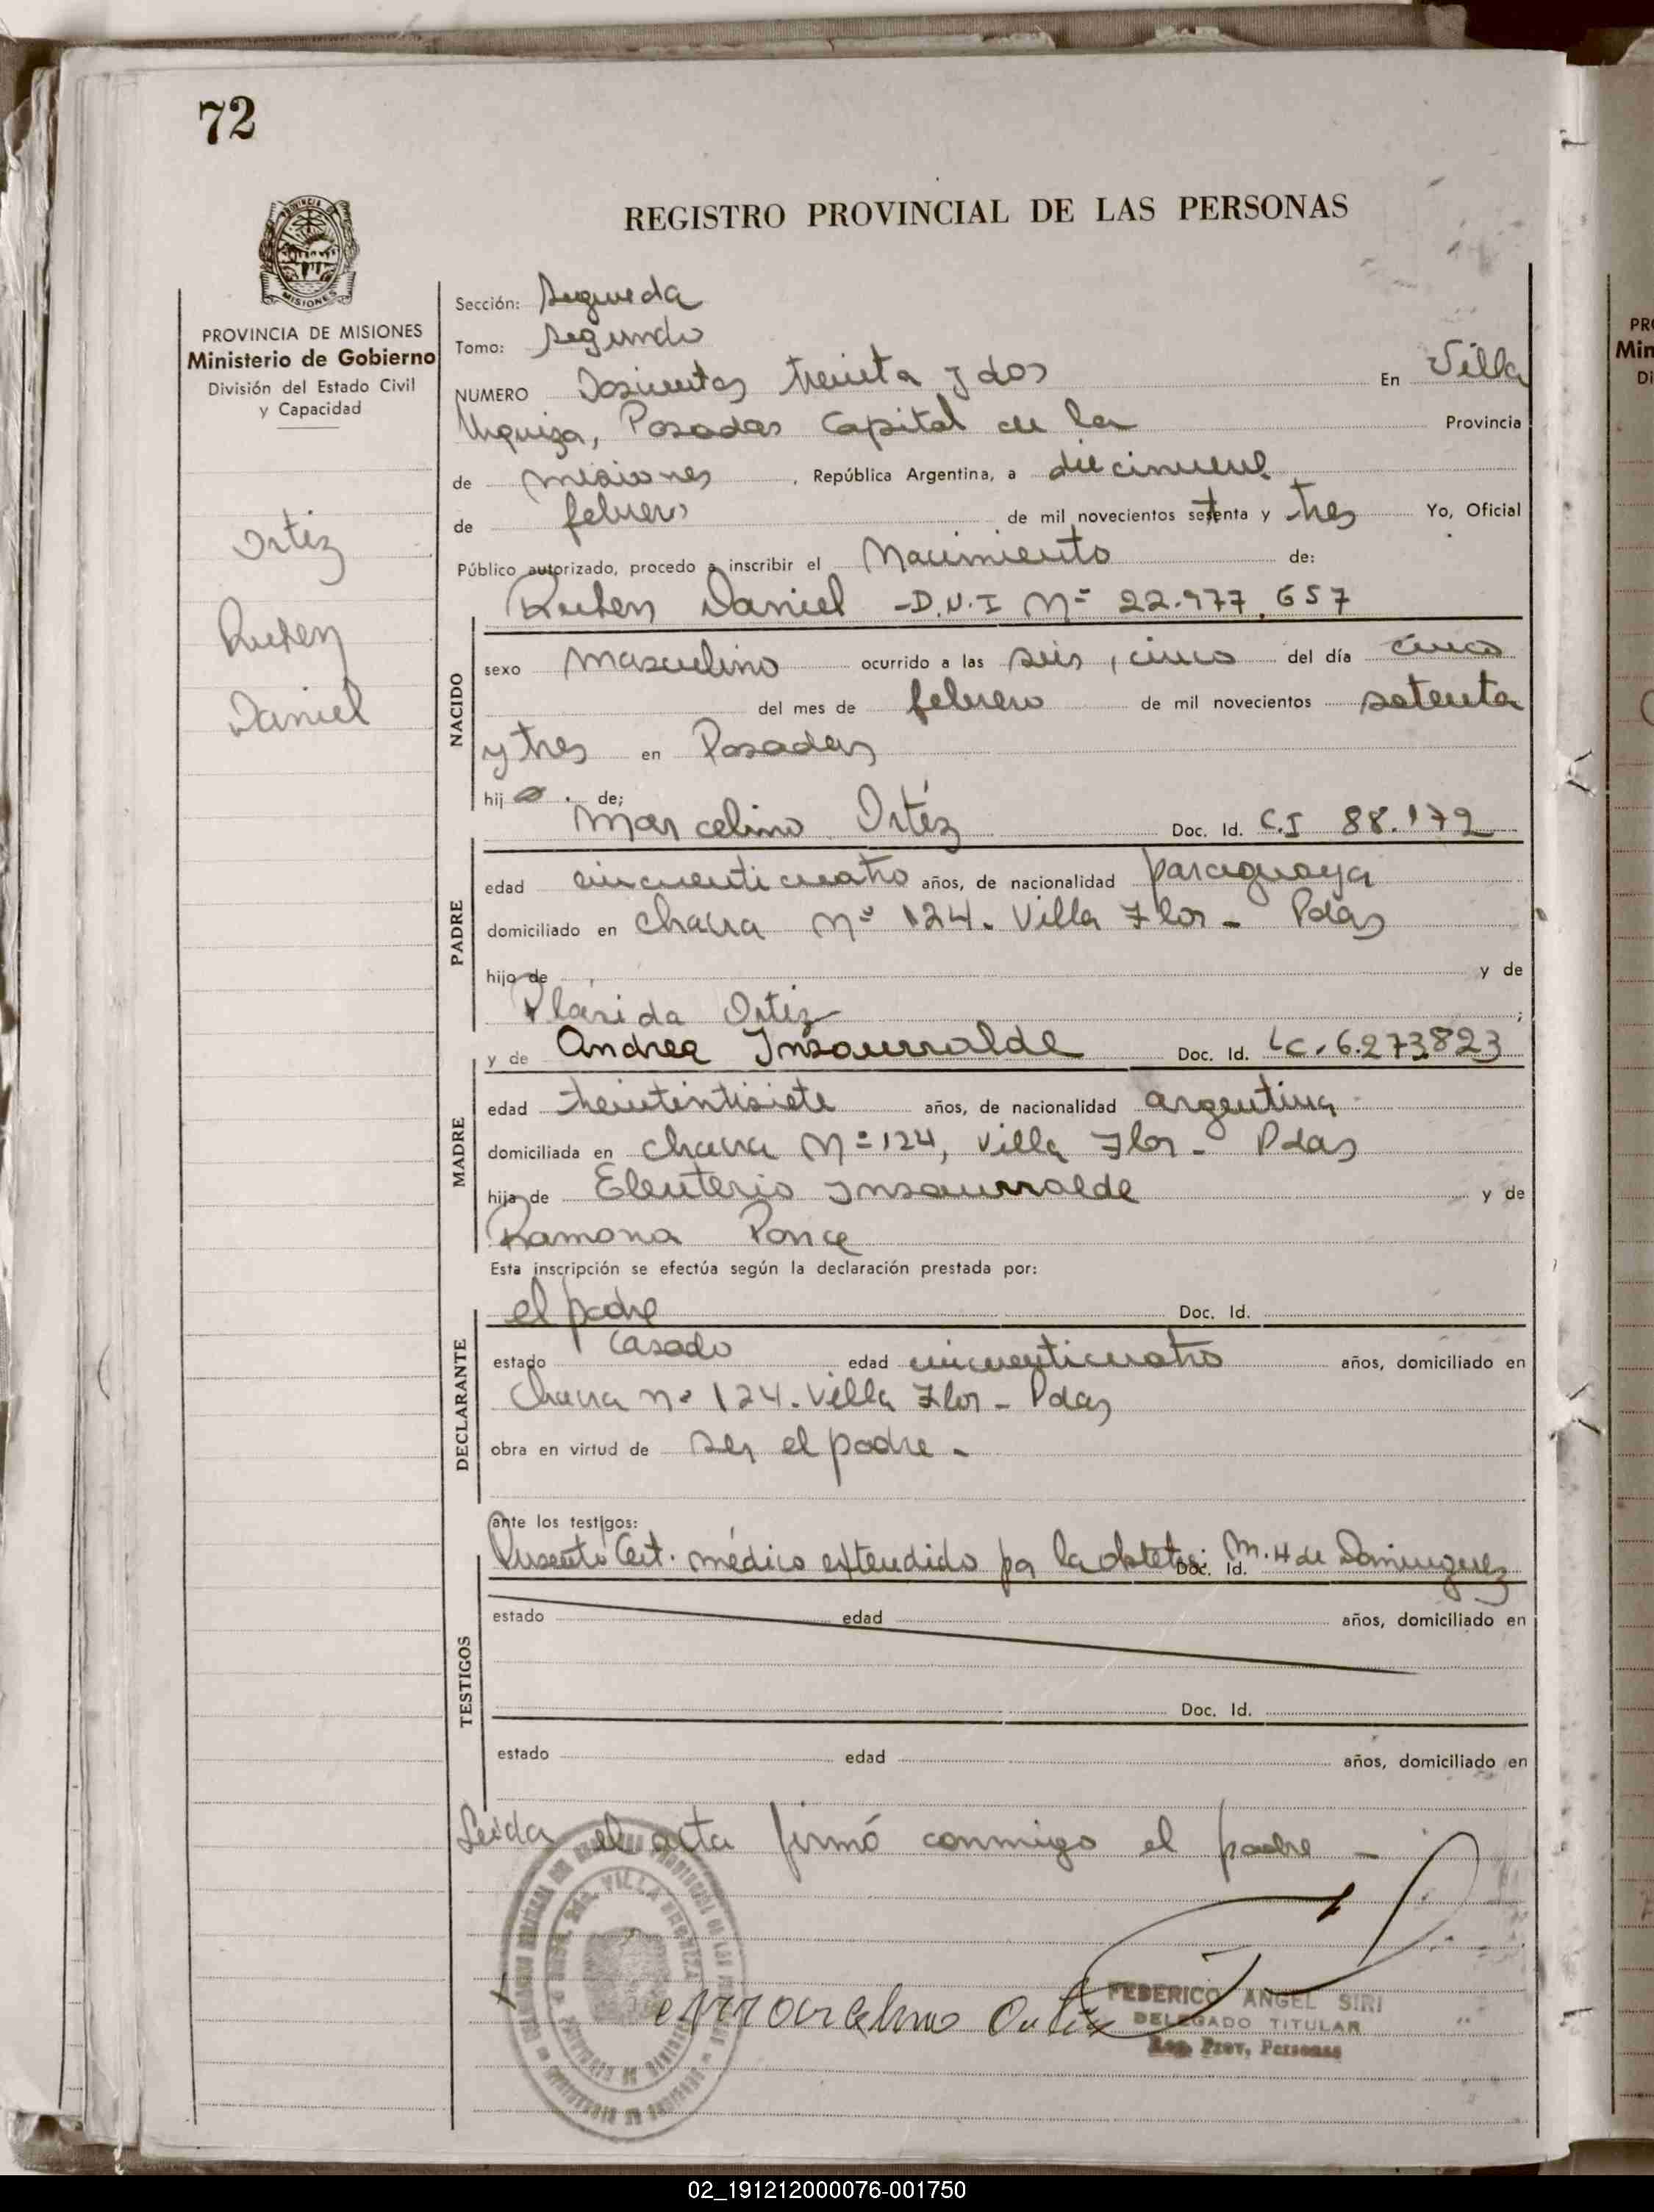 72
REGISTRO PROVINCIAL DE LAS PERSONAS
MISIONES
PROVINCIA DE MISIONES
Ministerio de Gobierno
División del Estado Civil
y Capacidad
Ortiz
Ruben
Daniel
Sección: Segunda
Tomo: Segundo
NUMERO Dosientos treinta y dos En Villa
Urquiza, Posadas Capital de la Provincia
de Misiones, República Argentina, a diecinueve
de febrero de mil novecientos setenta y tres Yo, Oficial
Público autorizado, procedo a inscribir el Nacimiento de:
Ruben Daniel - D.N.I Nº 22.977.657
NACIDO
sexo Masculino ocurrido a las seis, cinco del día cinco
del mes de febrero de mil novecientos setenta
y tres en Posadas
hijo de;
Marcelino Ortíz Doc. Id. C.I 88.172
PADRE
edad cincuenticuatro años, de nacionalidad paraguaya
domiciliado en chacra Nº 124. Villa Flor - Pdas
hijo de y de
Plásida Ortiz ;
y de Andrea Insaurralde Doc. Id. LC. 6.273.823
MADRE
edad treintentisiete años, de nacionalidad argentina
domiciliada en chacra Nº 124, Villa Flor - Pdas
hija de Eleuterio Insaurralde y de
Ramona Ponce
Esta inscripción se efectúa según la declaración prestada por:
el padre Doc. Id.
DECLARANTE
estado Casado edad cincuenticuatro años, domiciliado en
Chacra nº 124. Villa Flor - Pdas
obra en virtud de ser el padre -
ante los testigos:
Presentó Cert. médico extendido por la obstetr. Doc. Id. M. H de Dominguez
TESTIGOS
estado edad años, domiciliado en
Doc. Id.
estado edad años, domiciliado en
Leida el acta firmó conmigo el padre -
VILLA URQUIZA
Marcelino Ortiz
FEDERICO ANGEL SIRI
DELEGADO TITULAR
Reg. Prov, Personas
02_191212000076-001750